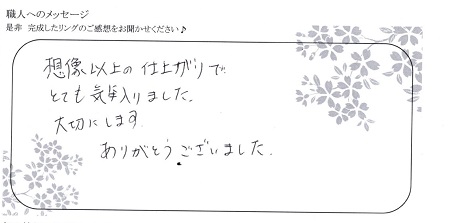 職人へのメッセージ
是非 完成したリングのご感想をお聞かせください♪
想像以上の仕上がりで
とても気入りました。
大切にします
ありがとうございました。